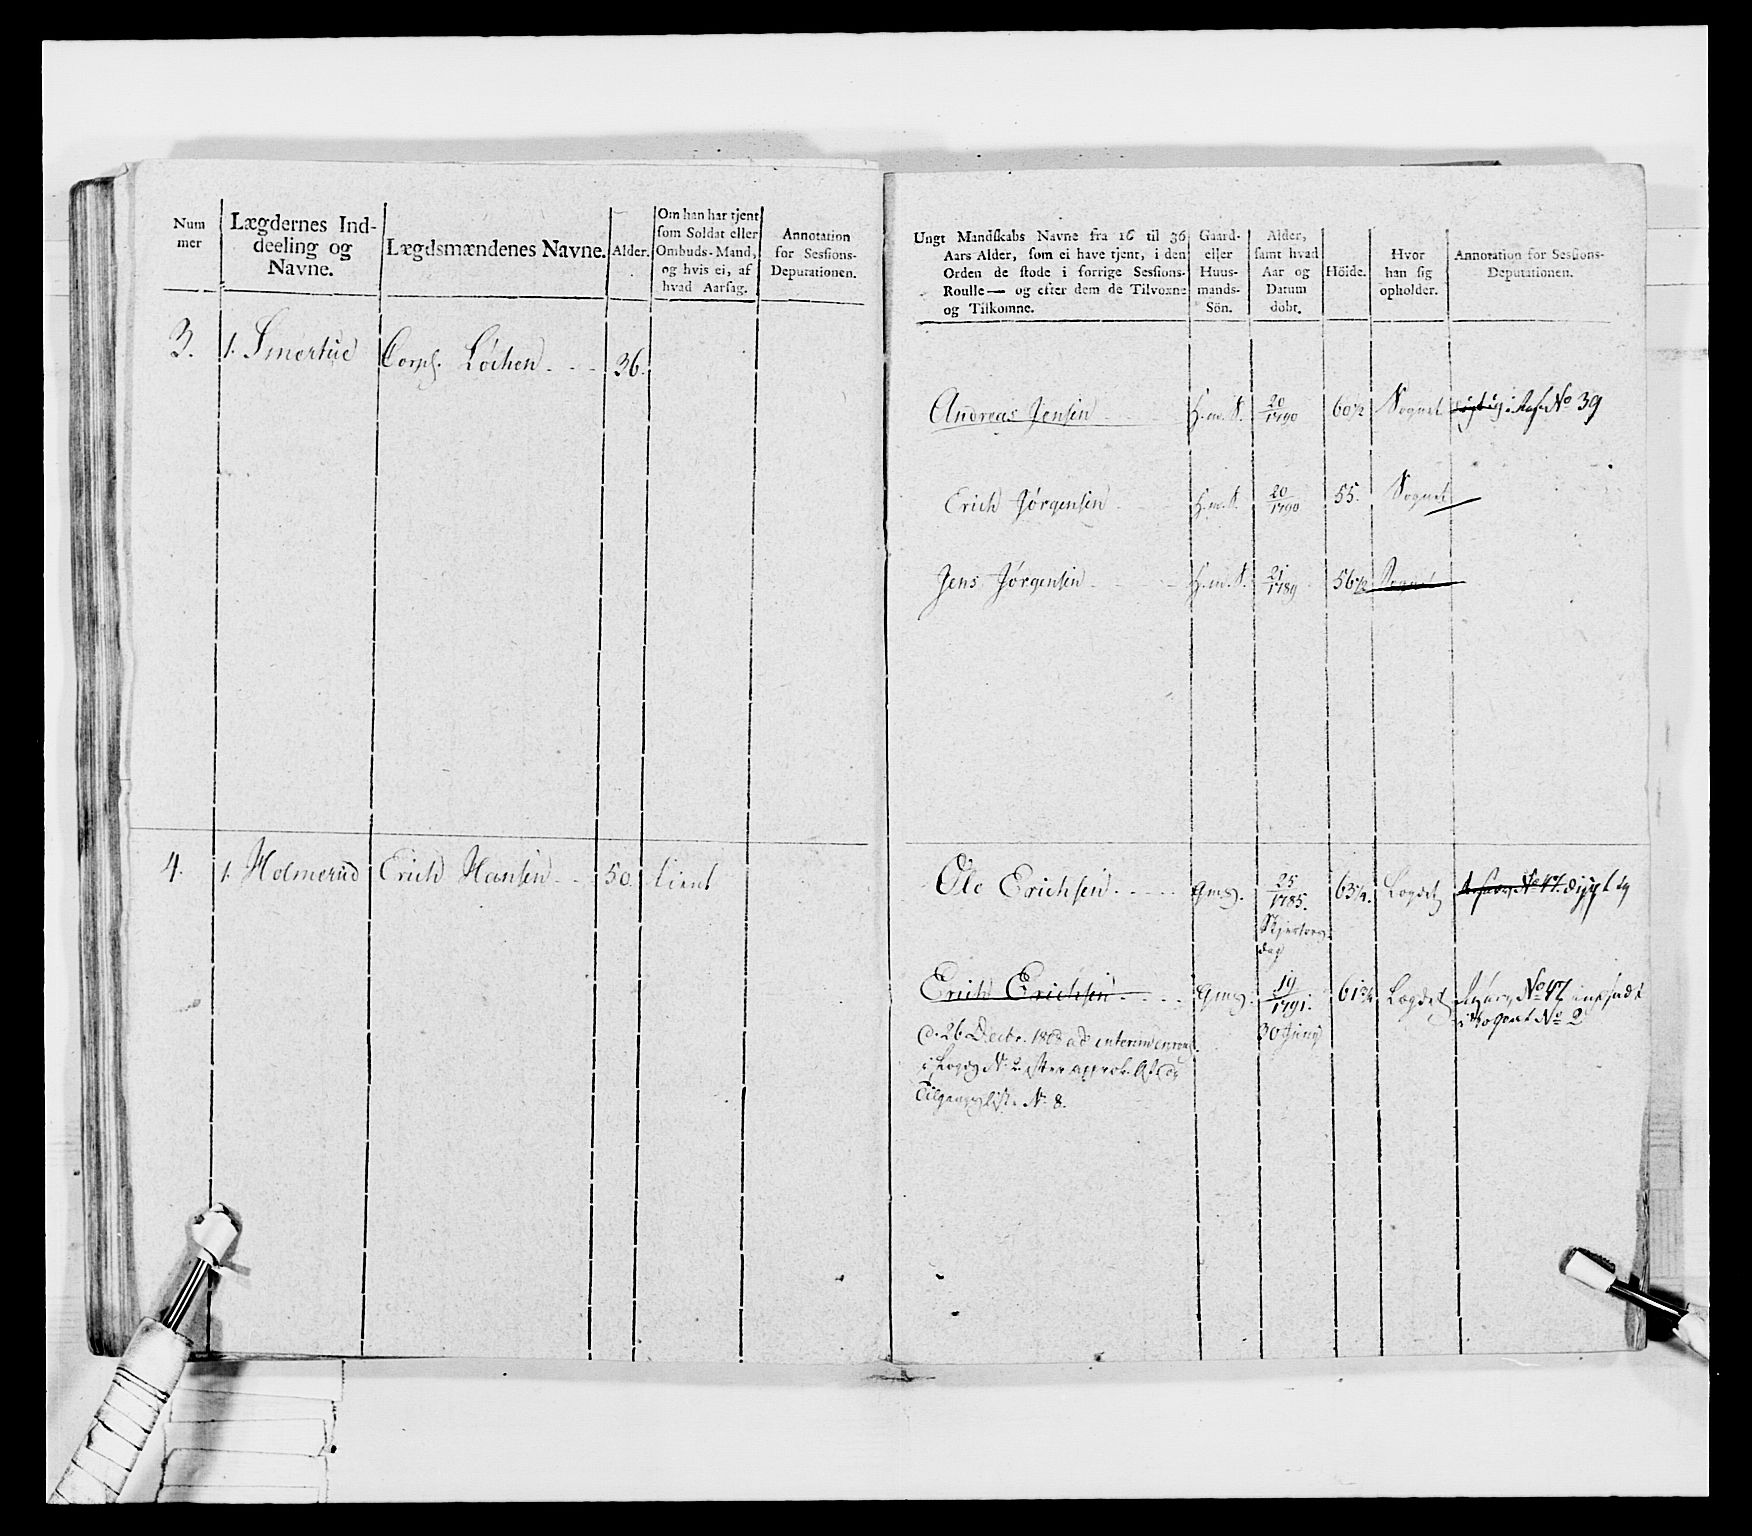 Num
mer
Lægdernes Ind-
deeling og
Navne.
Lægdsmændenes Navne.
Alder.
Om han har tjent
som Soldat eller
Ombuds-Mand,
og hvis ei, af
hvad Aarsag.
Annotation
for Sessions-
Deputationen.
3. 1. Smertue Corpl. Löchen 36.
4. 1. Holmerud Erich Hansen 50. tient
Ungt Mandskabs Navne fra 16 til 36
Aars Alder, som ei have tjent, i den
Orden de stode i forrige Sessions-
Roulle — og efter dem de Tilvoxne
og Tilkomne.
Gaard-
eller
Huus-
mands-
Sön.
Alder,
samt hvad
Aar og
Datum
döbt.
Höide.
Hvor
han sig
opholder.
Annotation for Sessions-
Deputationen.
Andreas Jensen H.m.S. 20/1790 60 1/2 Sognet No 39
Erich Jörgensen H.m.S. 20/1790 55. Sognet
Jens Jörgensen H.m.S. 21/1789 56 1/2 Sognet
Ole Erichsen gms. 25/1785. 63 1/4. Lægdet No 47. dygtig
dag
Erich Erichsen gms. 19/1791. 61 3/4 Lægdet No 47 indsadt
30 Juny i Lægdet No 2
d. 26 Decbr. 1808 ad interim
i Lægd No 2 efter approb.
Tilgangsliste No 8.